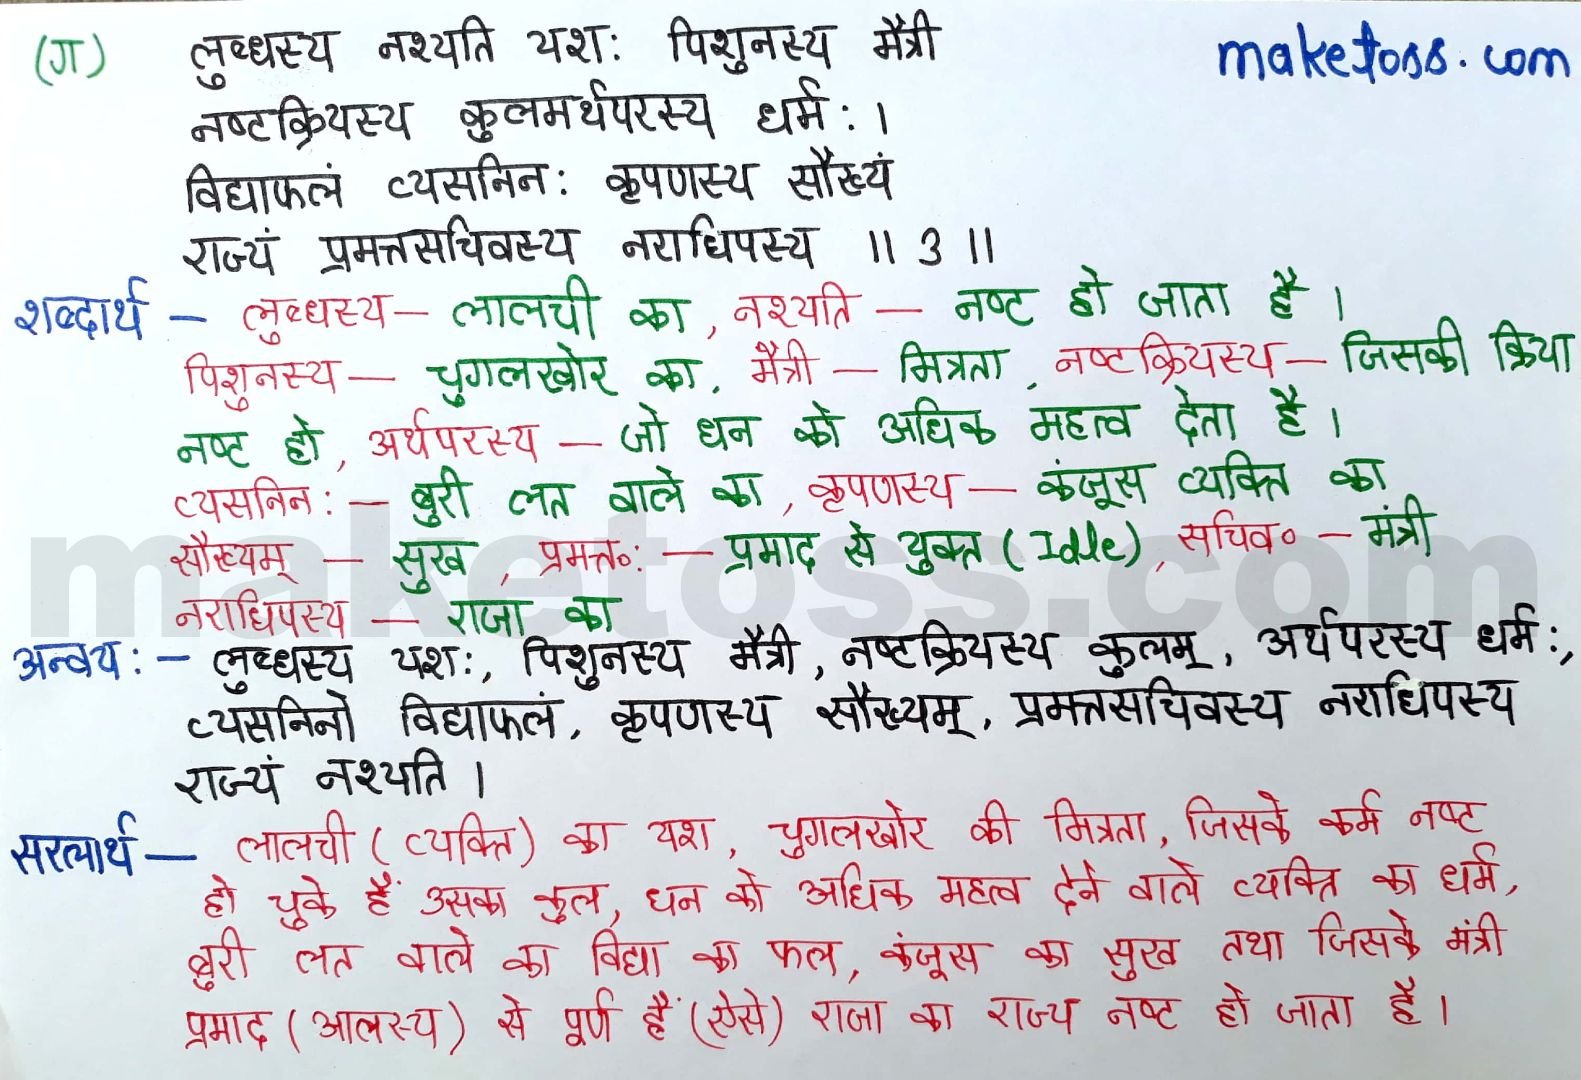 (ग) लुब्धस्य नश्यति यशः पिशुनस्य मैत्री
maketoss.com
नष्टक्रियस्य कुलमर्थपरस्य धर्मः ।
विद्याफलं व्यसनिनः कृपणस्य सौख्यं
राज्यं प्रमत्तसचिवस्य नराधिपस्य ॥ 3 ॥
शब्दार्थ – लुब्धस्य – लालची का, नश्यति – नष्ट हो जाता है ।
पिशुनस्य – चुगलखोर का, मैत्री – मित्रता, नष्टक्रियस्य – जिसकी क्रिया
नष्ट हो, अर्थपरस्य – जो धन को अधिक महत्व देता है ।
व्यसनिनः – बुरी लत वाले का, कृपणस्य – कंजूस व्यक्ति का
सौख्यम् – सुख, प्रमत्त०ः – प्रमाद से युक्त (Idle), सचिव० – मंत्री
नराधिपस्य – राजा का
maketoss.com
अन्वयः – लुब्धस्य यशः, पिशुनस्य मैत्री, नष्टक्रियस्य कुलम्, अर्थपरस्य धर्मः,
व्यसनिनो विद्याफलं, कृपणस्य सौख्यम्, प्रमत्तसचिवस्य नराधिपस्य
राज्यं नश्यति ।
सरलार्थ – लालची (व्यक्ति) का यश, चुगलखोर की मित्रता, जिसके कर्म नष्ट
हो चुके हैं उसका कुल, धन को अधिक महत्व देने वाले व्यक्ति का धर्म,
बुरी लत वाले का विद्या का फल, कंजूस का सुख तथा जिसके मंत्री
प्रमाद (आलस्य) से पूर्ण हैं (ऐसे) राजा का राज्य नष्ट हो जाता है ।